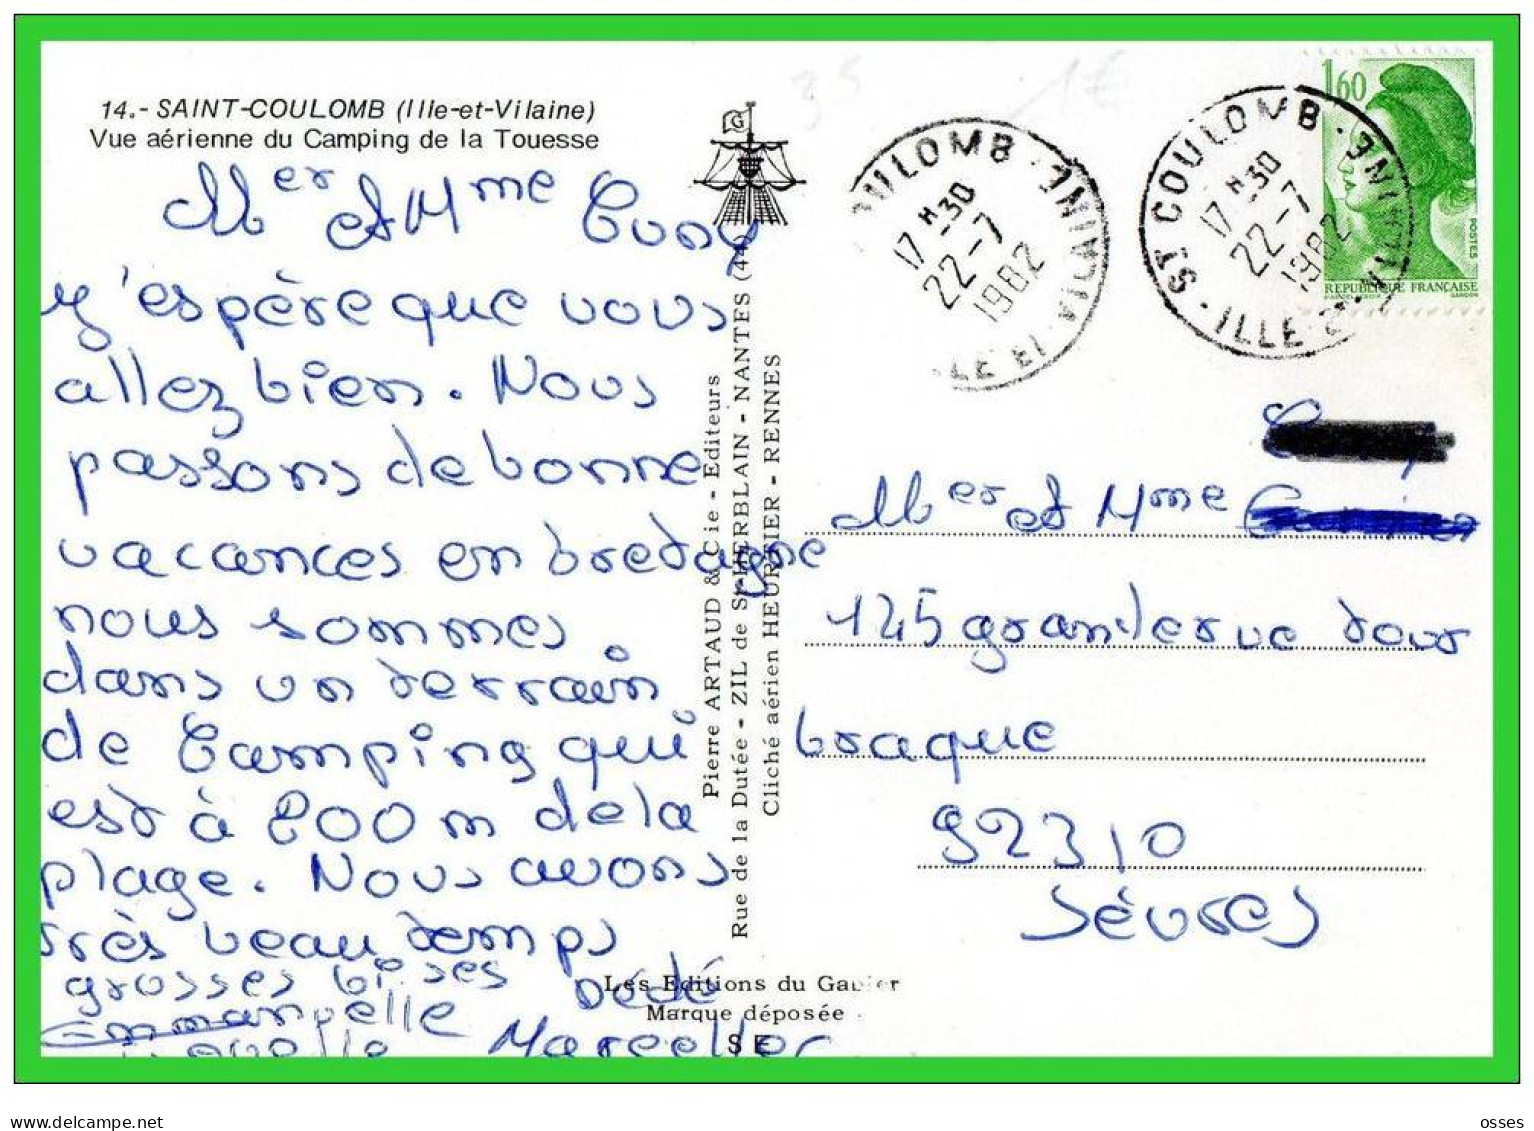 14.- SAINT-COULOMB (Ille-et-Vilaine)
Vue aérienne du Camping de la Touesse
Mer et Mme Cuny
y'espère que vous
allez bien. Nous
passons de bonne
vacances en bretagne
nous sommes
dans un terrain
de Camping qui
est à 800m de la
plage. Nous avons
très beau temps
grosses bises
Dédé
Emmanuelle
Pierre ARTAUD & Cie - Editeurs
Rue de la Dutée - ZIL de St-HERBLAIN - NANTES (44)
Cliché aérien HEURTIER - RENNES
Les Editions du Gabier
Marque déposée
S E
G
OULOMB · ILLE ET VILAINE
17 H 30
22-7
1982
ST COULOMB · ILLE ET VILAINE
17 H 30
22-7
1982
1,60
POSTES
REPUBLIQUE FRANÇAISE
3 €
1 €
Mer et Mme
125 grande rue tour
braque
92310
Sèvres
osses